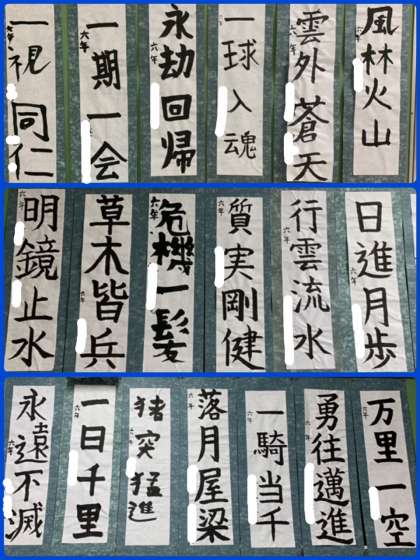 風林火山
六年
雲外蒼天
六年
一球入魂
六年
永劫回帰
六年
一期一会
六年
一視同仁
六年
日進月歩
六年
行雲流水
六年
質実剛健
六年
危機一髪
六年
草木皆兵
六年
明鏡止水
六年
万里一空
六年
勇往邁進
六年
一騎当千
六年
落月屋梁
六年
猪突猛進
六年
一日千里
六年
永遠不滅
六年